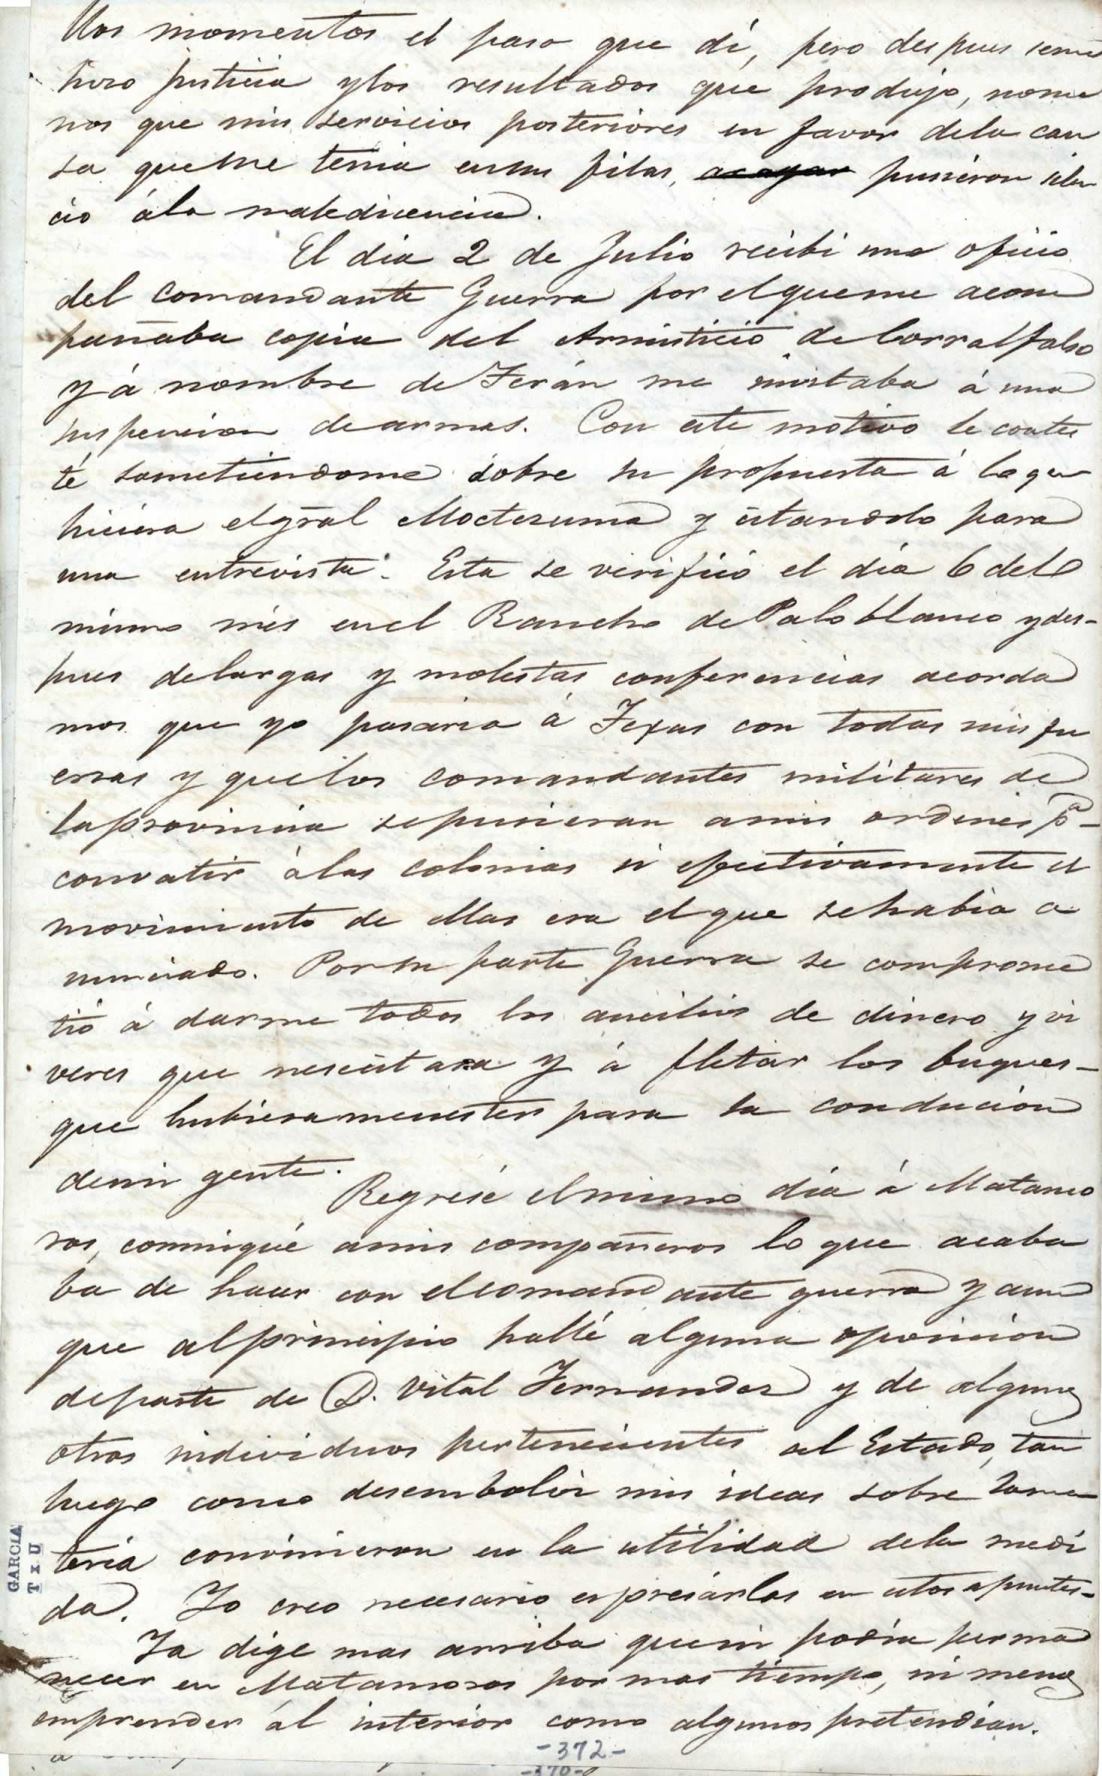 llos momentos el paso que dí, pero despues seme
hizo justicia ylos resultados que produjo, nome
nos que mis servicios posteriores en favor dela cau
sa queme tenia ensus filas, pusieron silen
cio ála maledicencia.
El dia 2 de Julio recibi una oficio
del comandante Guerra por elqueme acom
pañaba copia del Armisticio de Corralfalso
y á nombre de Terán me invitaba á una
suspencion dearmas. Con este motivo le contes
té sometiendome sobre su propuesta á loque
hiciera elgral Moctesuma y citandolo para
una entrevista. Esta se verificó el día 6 del
mismo més enel Rancho de Palo blanco ydes-
pues delargas y molestas conferencias acorda
mos que yo pasaria á Texas con todas mis fu
erzas y quelos comandantes militares de
laprovincia sepusieran amis ordenes pa-
convatir álas colonias si efectivamente el
movimiento de ellas era el que sehabia a
nunciado. Porsu parte Guerra se comprome
tió á darme todos los aucilios de dinero y vi
veres que nesecitara y á fletar los buques-
que hubieramenester para la conducion
demi gente.
Regresé elmismo día á Matamo
ros, comuniqué amis compañeros lo que acaba
ba de hacer con elcomandante guerra y aun
que alprincipio hallé alguna oposicion
departe de D. Vital Fernandez y de algunos
otros individuos pertenecientes al Estado, tan
luego como desembolví mis ideas sobre lama
teria convinieron en la utilidad dela medi
da. Yo creo necesario espresárlas en estos apuntes-
Ya dige mas arriba queni podía perma
necer en Matamoros por mas tiempo, ni menos
emprender al interior como algunos pretendian.
-372-
-370-
GARCIA
T x U